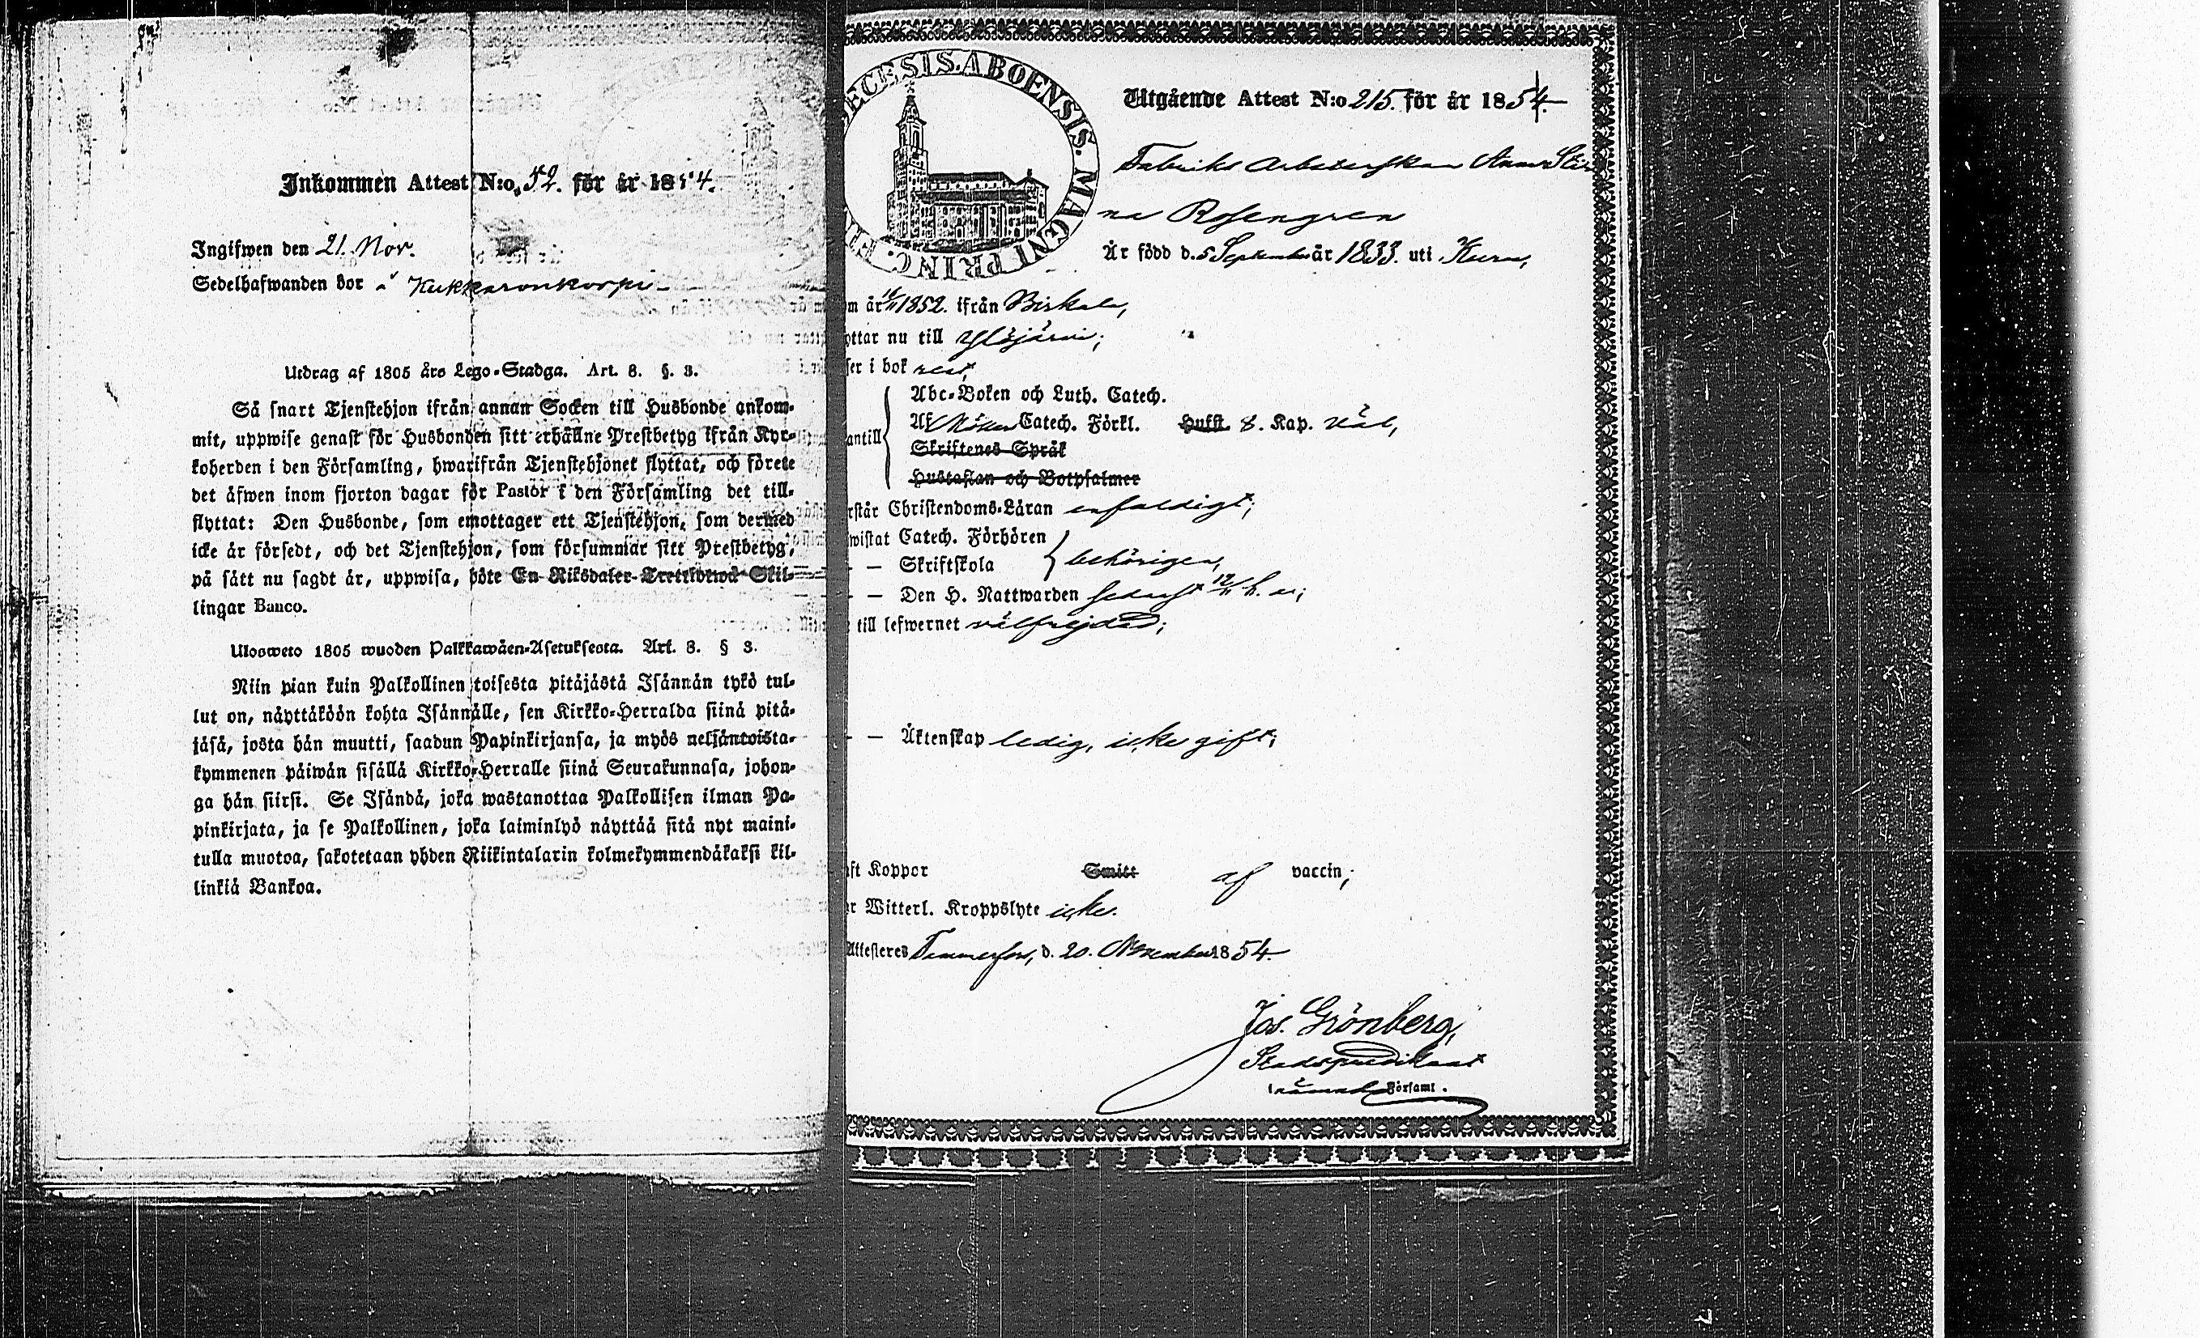 Inkommen Attest N:o 52. för år 1854.
Ingifwen den 21. Nov.
Sedelhafwanden bor i Kukkaronkorpi
Utdrag af 1805 års Lego-Stadga. Art. 8. §. 3.
Så snart Tjenstehjon ifrån annan Socken till Husbonde ankom-
mit, uppwise genast för Husbonden sitt erhållne Prestbetyg ifrån Kyr-
koherden i den Församling, hwarifrån Tjenstehjonet flyttat, och förete
det äfwen inom fjorton dagar för Pastor i den Församling det till-
flyttat: Den Husbonde, som emottager ett Tjenstehjon, som dermed
icke är försedt, och det Tjenstehjon, som försummar sitt Prestbetyg,
på sätt nu sagdt är, uppwisa, böte En Riksdaler Trettiotwå Skil-
lingar Banco.
Ulosweto 1805 wuoden Palkkawäen-Asetuksesta. Art. 8. § 3.
Niin pian kuin Palkollinen toisesta pitäjästä Isännän tykö tul-
lut on, näyttäköön kohta Isännälle, sen Kirkko-Herralda siinä pitä-
jäsä, josta hän muutti, saadun Papinkirjansa, ja myös neljäntoista-
kymmenen päiwän sisällä Kirkko-Herralle siinä Seurakunnasa, johon-
ga hän siirsi. Se Isändä, joka wastanottaa Palkollisen ilman Pa-
pinkirjata, ja se Palkollinen, joka laiminlyö näyttää sitä nyt maini-
tulla muotoa, sakotetaan yhden Riikintalarin kolmekymmendäkaksi kil-
linkiä Bankoa.
ECESIS. ABOENSIS. MAGNI PRINC. FI
Utgående Attest N:o 215. för år 1854.
Fabriks Arbeterskan Anna Sti
na Rosengren
Är född d. 5 September år 1833. uti Kuru,
m år 1852. ifrån Birkala,
yttar nu till Ylöjärvi;
ser i bok rent,
Abc-Boken och Luth. Catech.
Af Catech. Förkl. Hufst. 8. Kap. väl,
antill
Skriftenes Språk
Hustaflan och Botpsalmer
rstår Christendoms-Läran enfaldigt;
wistat Catech. Förhören
— — Skriftskola behörigen,
— — Den H. Nattwarden senast 12/11 h. a.;
till lefwernet välfrejdad;
— — Äktenskap ledig, icke gift;
ft Koppor Smitt af vaccin;
r Witterl. Kroppslyte icke.
Attesteres Tammerfors, d. 20. November 1854.
Jos. Grönberg,
Stadspredikant
Församl.